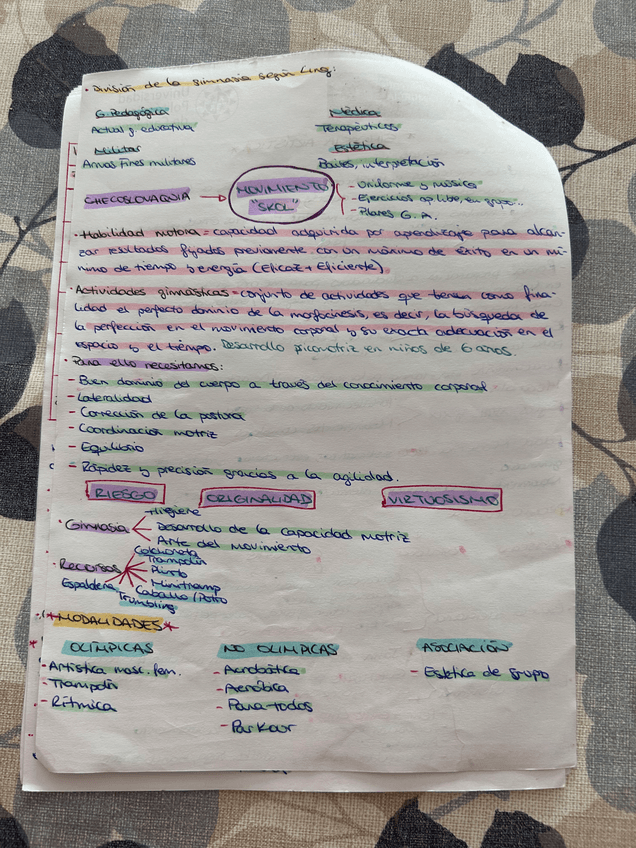 · División de la gimnasia según Ling:
G. Pedagógica
Médica
Actual y educativa
Terapeúticos
Militar
Estética
Armas fines militares
Bailes, interpretación
CHECOSLOVAQUIA → MOVIMIENTO "SKOL"
- Uniforme y música
- Ejercicios aplibe, en grupo...
- Pilares G. A.
· Habilidad motora = capacidad adquirida por aprendizaje para alcan-
zar resultados fijados previamente con un máximo de éxito en un mí-
nimo de tiempo y energía (Eficaz + Eficiente).
· Actividades gimnásticas = conjunto de actividades que tienen como fina-
lidad el perfecto dominio de la morfocinesis, es decir, la búsqueda de
la perfección en el movimiento corporal y su exacta adecuación en el
espacio y el tiempo. Desarrollo picomotriz en niños de 6 años.
· Para ello necesitamos:
- Buen dominio del cuerpo a través del conocimiento corporal
- Lateralidad
- Corrección de la postura
- Coordinación motriz
- Equilibrio
- Rápidez y precisión gracias a la agilidad.
RIESGO ORIGINALIDAD VIRTUOSISMO
Higiene
· Gimnasia Desarrollo de la capacidad motriz
Arte del movimiento
Colchoneta
Trampolín
· Recursos Plinto
Espaldera Minitramp
Caballo / Potro
Trumbling
* MODALIDADES *
OLÍMPICAS NO OLIMPICAS ASOCIACIÓN
- Artística masc. fem. - Acrobática - Estética de grupo
- Trampolín - Aeróbica
- Rítmica - Para todos
- Parkour